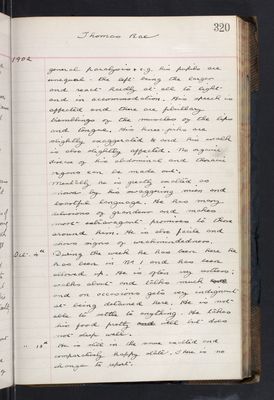 320
Thomas Rae
1902
general paralysis, e.g. his pupils are
unequal - the left being the larger
and react badly at all to light
and in accommodation. His speech is
affected and there are fibrillary
tremblings of the muscles of the lips
and tongue. His knee-jerks are
slightly exaggerated & and his walk
is also slightly affected. No organic
disease of his abdominal and thoracic
organs can be made out.
Mentally he is greatly exalted as
shown by his swaggering mien and
boastful language. He has many
delusions of grandeur and makes
most extravagant promises to those
around him. He is also facile and
shows signs of weakmindedness.
Oct. 4th During the week he has been here he
has been in M. 1 and has been
allowed up. He is often very restless,
walks about and talks much
and on occasions gets very indignant
at being detained here. He is not
able to settle to anything. He takes
his food pretty well but does
not sleep well.
" 18th He is still in the same exalted and
comparatively happy state. There is no
change to report.